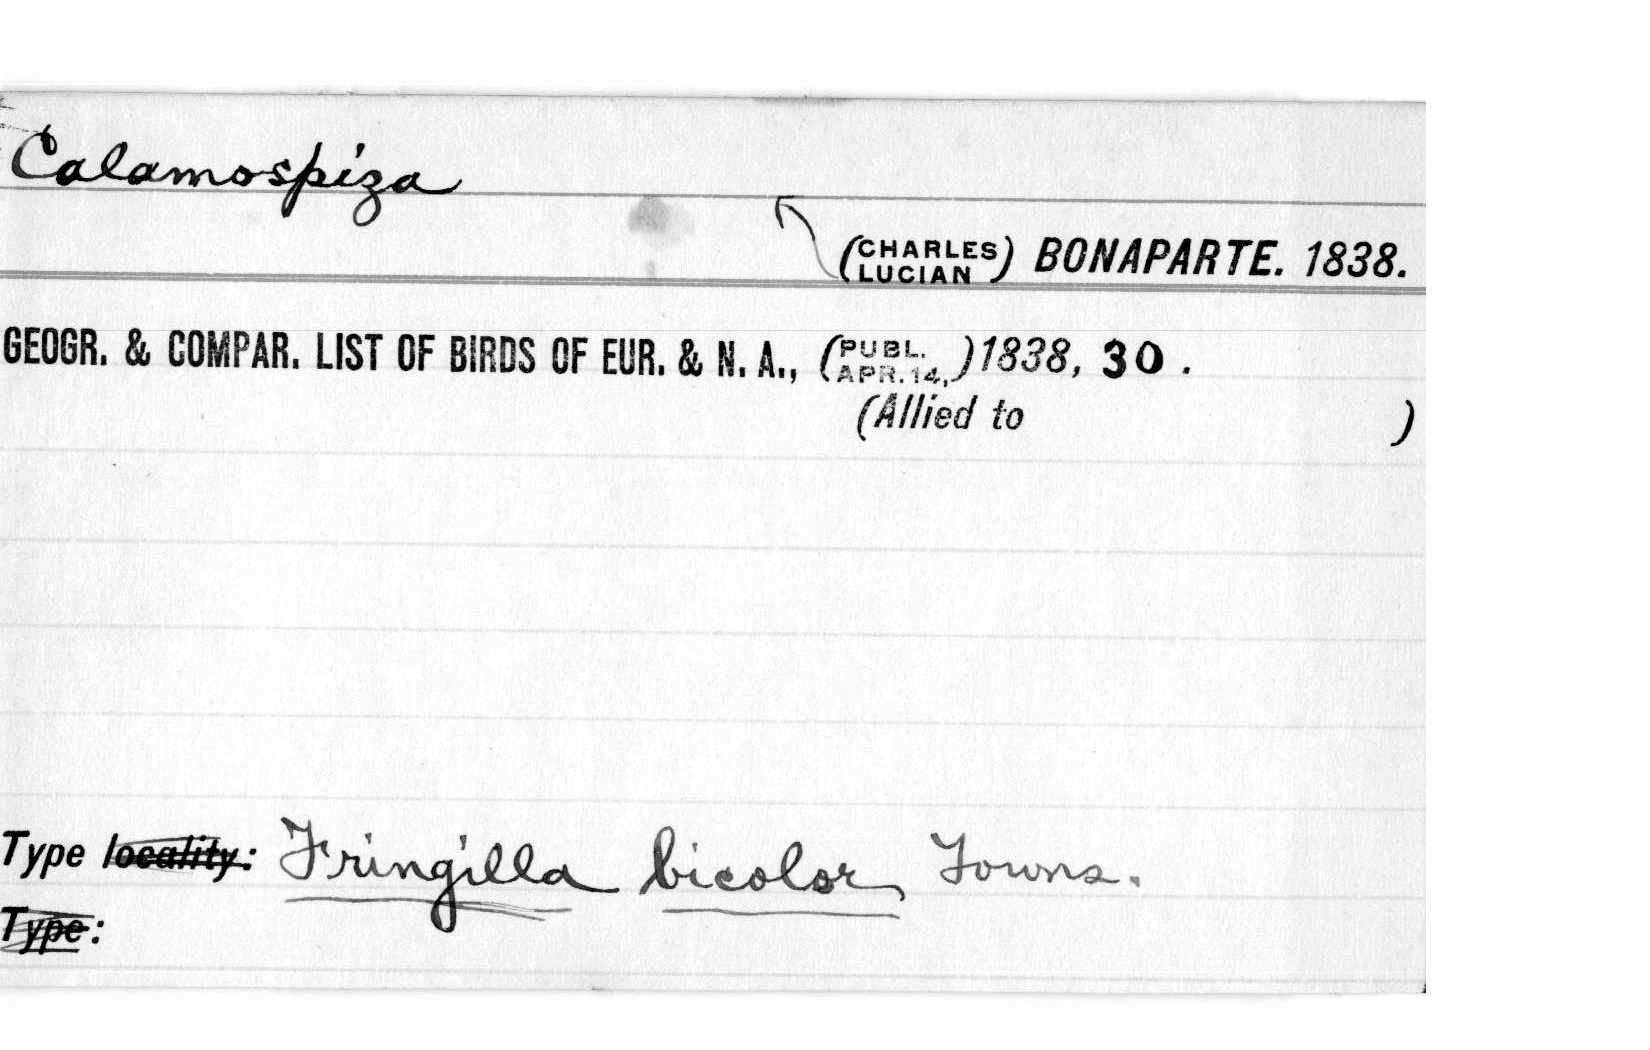 Calamospiza
(CHARLES LUCIAN) BONAPARTE. 1838.
GEOGR. & COMPAR. LIST OF BIRDS OF EUR. & N. A., (PUBL. APR. 14,) 1838, 30.
(Allied to )
Type locality: Fringilla bicolor Towns.
Type: